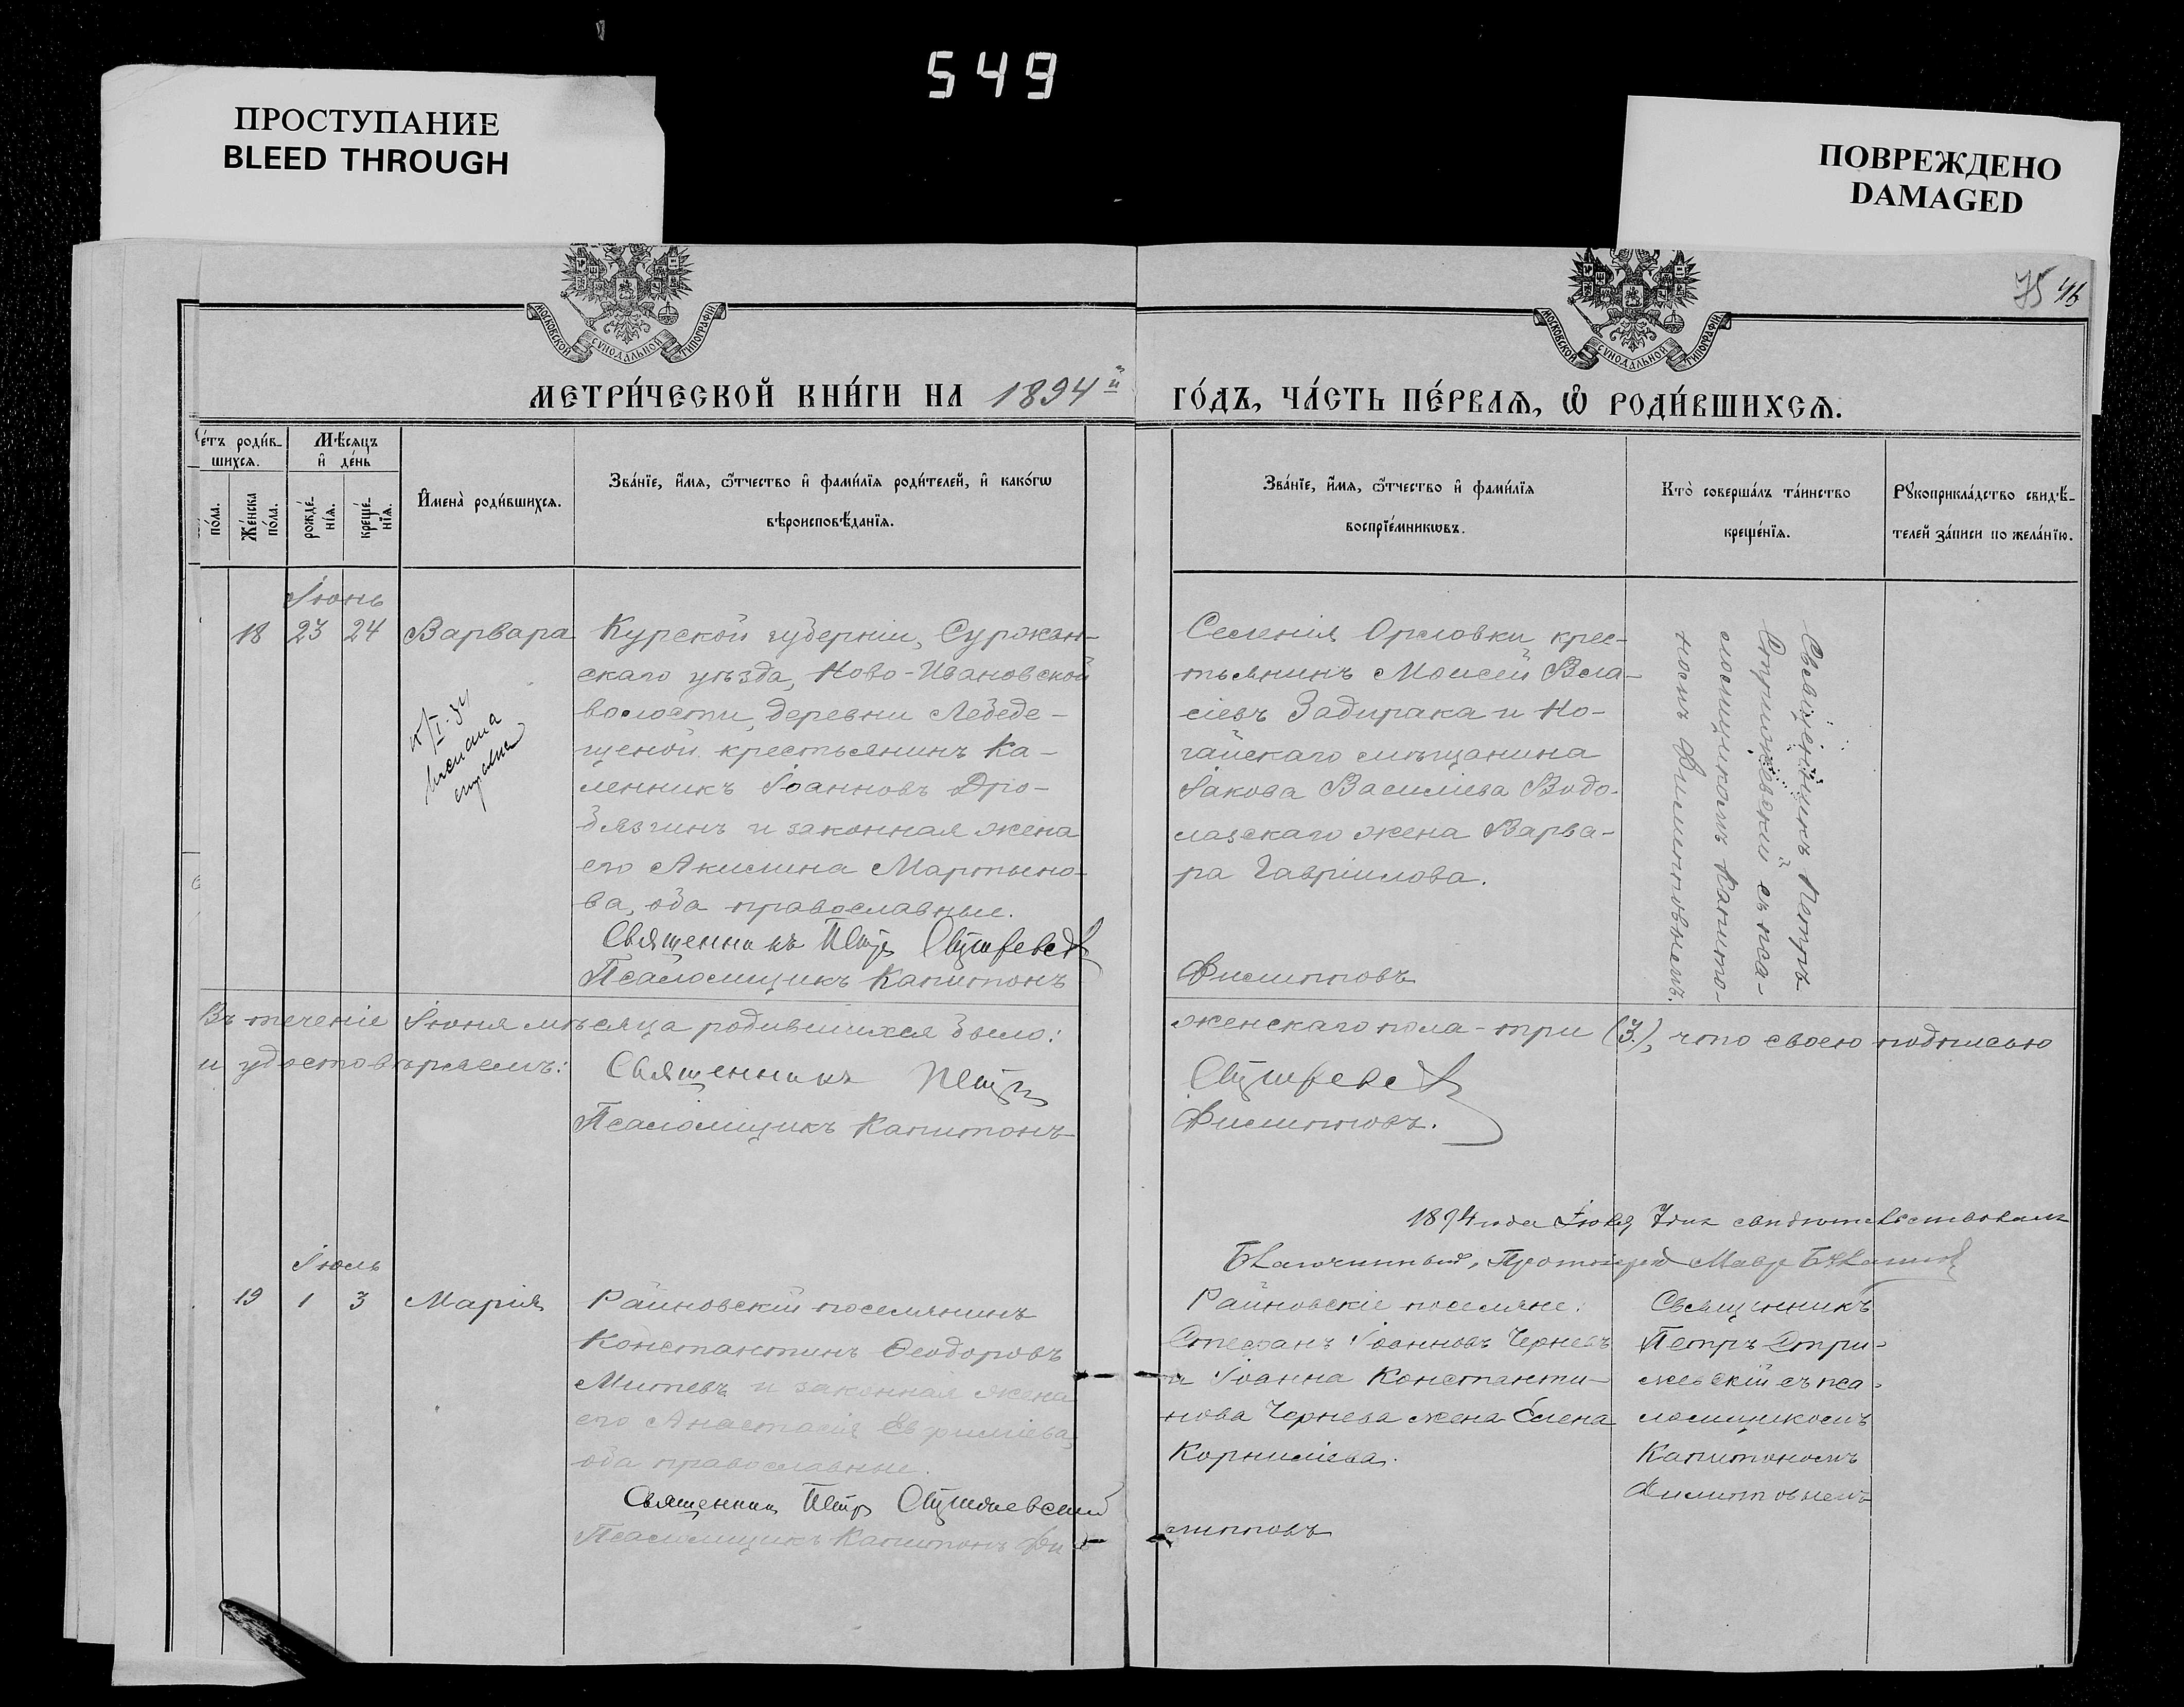 549
ПРОСТУПАНИЕ
BLEED THROUGH
ПОВРЕЖДЕНО
DAMAGED
75 46
МОСКОВСКОЙ СѴНОДАЛЬНОЙ ТИПОГРАФІИ
МОСКОВСКОЙ СѴНОДАЛЬНОЙ ТИПОГРАФІИ
МЕТРИ́ЧЕСКОЙ КНИ́ГИ НА 1894й ГО́ДЪ, ЧА́СТЬ ПЕ́РВАѦ, Ѡ҆ РОДИ́ВШИХСѦ.
е́тъ роди́в-
шихсѧ.
по́ла.
Же́нска по́ла.
Мѣ́сѧцъ
и҆ де́нь
рожде́-
нїѧ.
креще́-
нїѧ.
И҆мена̀ роди́вшихсѧ.
Зва́нїе, и҆́мѧ, ѻ҆́тчество и҆ фами́лїѧ роди́телей, и҆ како́гѡ
вѣроисповѣ́данїѧ.
Зва́нїе, и҆́мѧ, ѻ҆́тчество и҆ фами́лїѧ
воспрїе́мникѡвъ.
Кто̀ соверша́лъ та́инство
креще́нїѧ.
Рꙋкоприкла́дство свидѣ́-
телей за́писи по жела́нїю.
Іюнь
18 23 24 Варвара
Курской губерніи, Суржан-
скаго уѣзда, Ново-Ивановской
волости, деревни Лебеде-
щеной крестьянинъ Ка-
ленникъ Іоанновъ Дро-
бязгинъ и законная жена
его Акилина Мартыно-
ва, оба православные.
Священникъ Петръ
Псаломщикъ Капитонъ
Селенія Орловки крес-
тьянинъ Моисей Вла-
сіевъ Задирака и Но-
гайскаго мѣщанина
Іакова Василіева Водо-
лазскаго жена Варва-
ра Гавріилова.
Филипповъ
Священникъ Петръ
Стрижевскій съ пса-
ломщикомъ Капито-
номъ Филипповымъ.
Въ теченіе Іюня мѣсяца родившихся было: женскаго пола - три (3.), что своею подписью
и удостовѣряемъ:
Священникъ Петръ
Псаломщикъ Капитонъ Филипповъ.
1894 года Іюля 7 дня свидѣтельствовалъ
Благочинный, Протоіерей
Іюль
19 1 3 Марія
Райновскій поселянинъ
Константинъ Ѳеодоровъ
Митевъ и законная жена
его Анастасія Евфиміева,
оба православные.
Священникъ Петръ Стрижевскій
Псаломщикъ Капитонъ Фи-
Райновскіе поселяне:
Стефанъ Іоанновъ Черневъ
и Іоанна Константи-
нова Чернева жена Елена
Корниліева.
липповъ
Священникъ
Петръ Стри-
жевскій съ пса-
ломщикомъ
Капитономъ
Филипповымъ